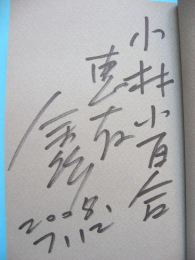 小林小百合
惠存
2008.
7.12